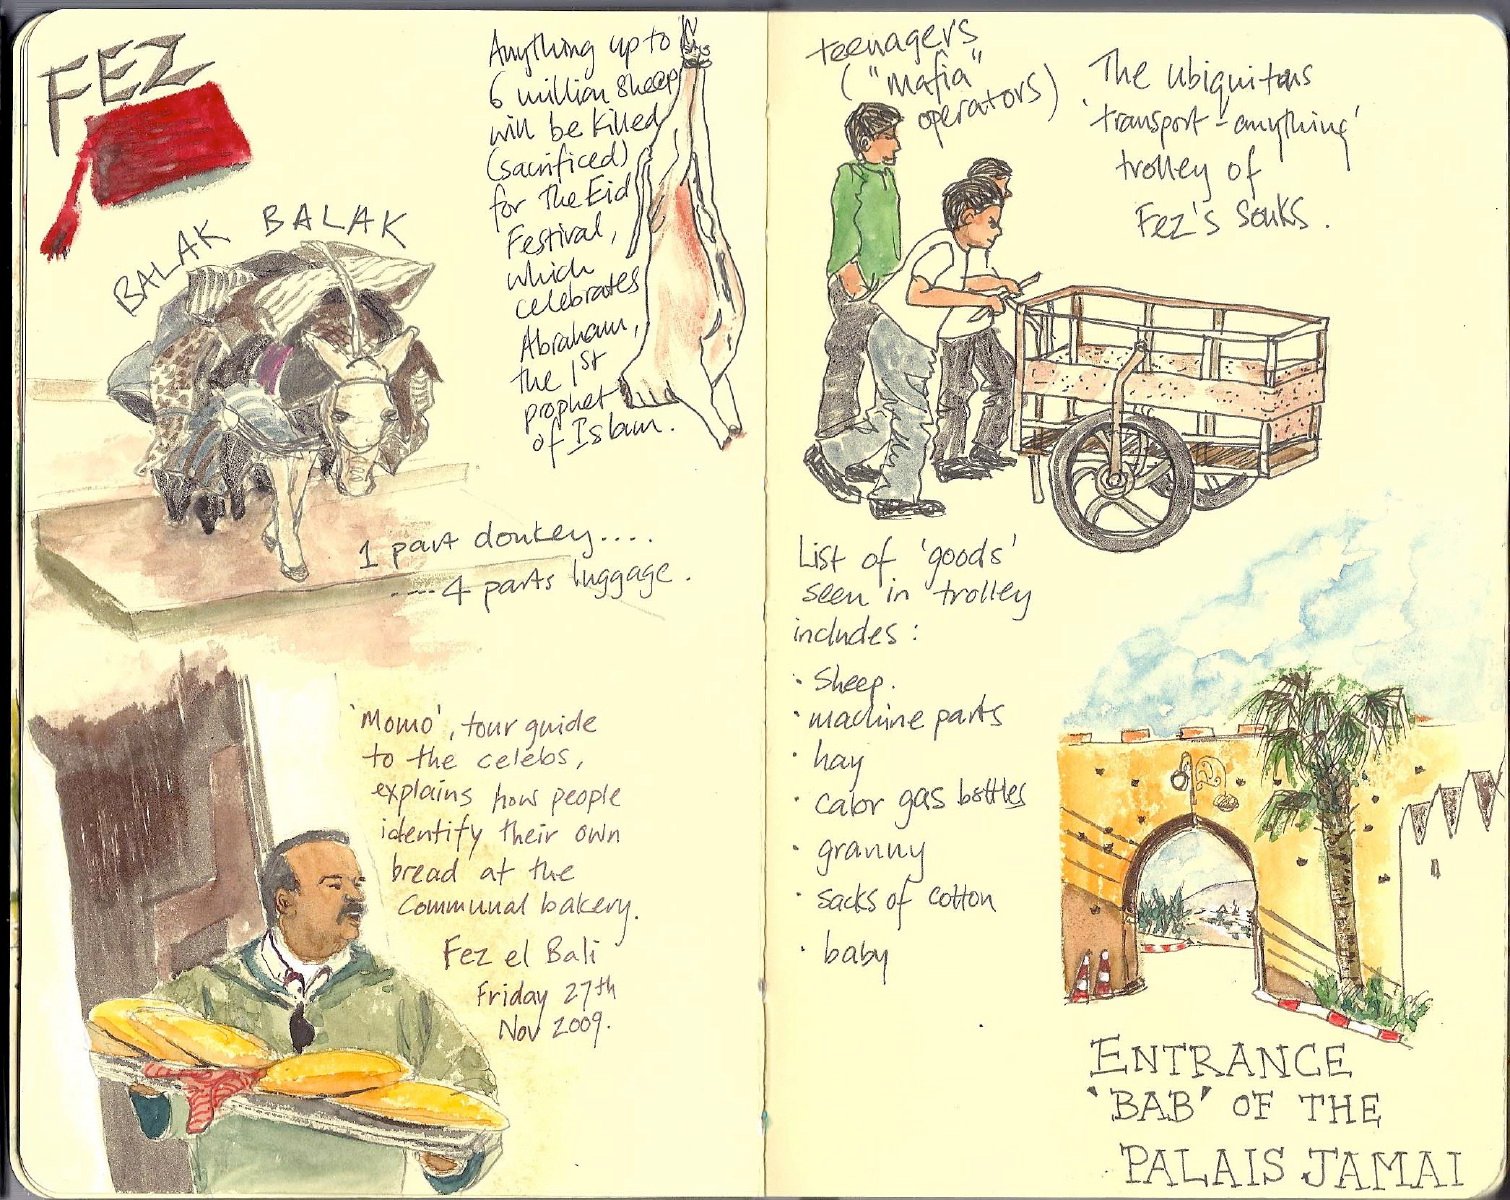 FEZ
BALAK BALAK
Anything up to
6 million sheep
will be killed
(sacrificed)
for The Eid
Festival,
which
celebrates
Abraham,
the 1st
prophet
of Islam.
1 part donkey....
....4 parts luggage.
'Momo', tour guide
to the celebs,
explains how people
identify their own
bread at the
communal bakery.
Fez el Bali
Friday 27th
Nov 2009.
teenagers
("mafia"
operators)
The ubiquitous
'transport-anything'
trolley of
Fez's souks.
List of 'goods'
seen in trolley
includes:
· Sheep.
· machine parts
· hay
· calor gas bottles
· granny
· sacks of cotton
· baby
ENTRANCE
'BAB' OF THE
PALAIS JAMAI